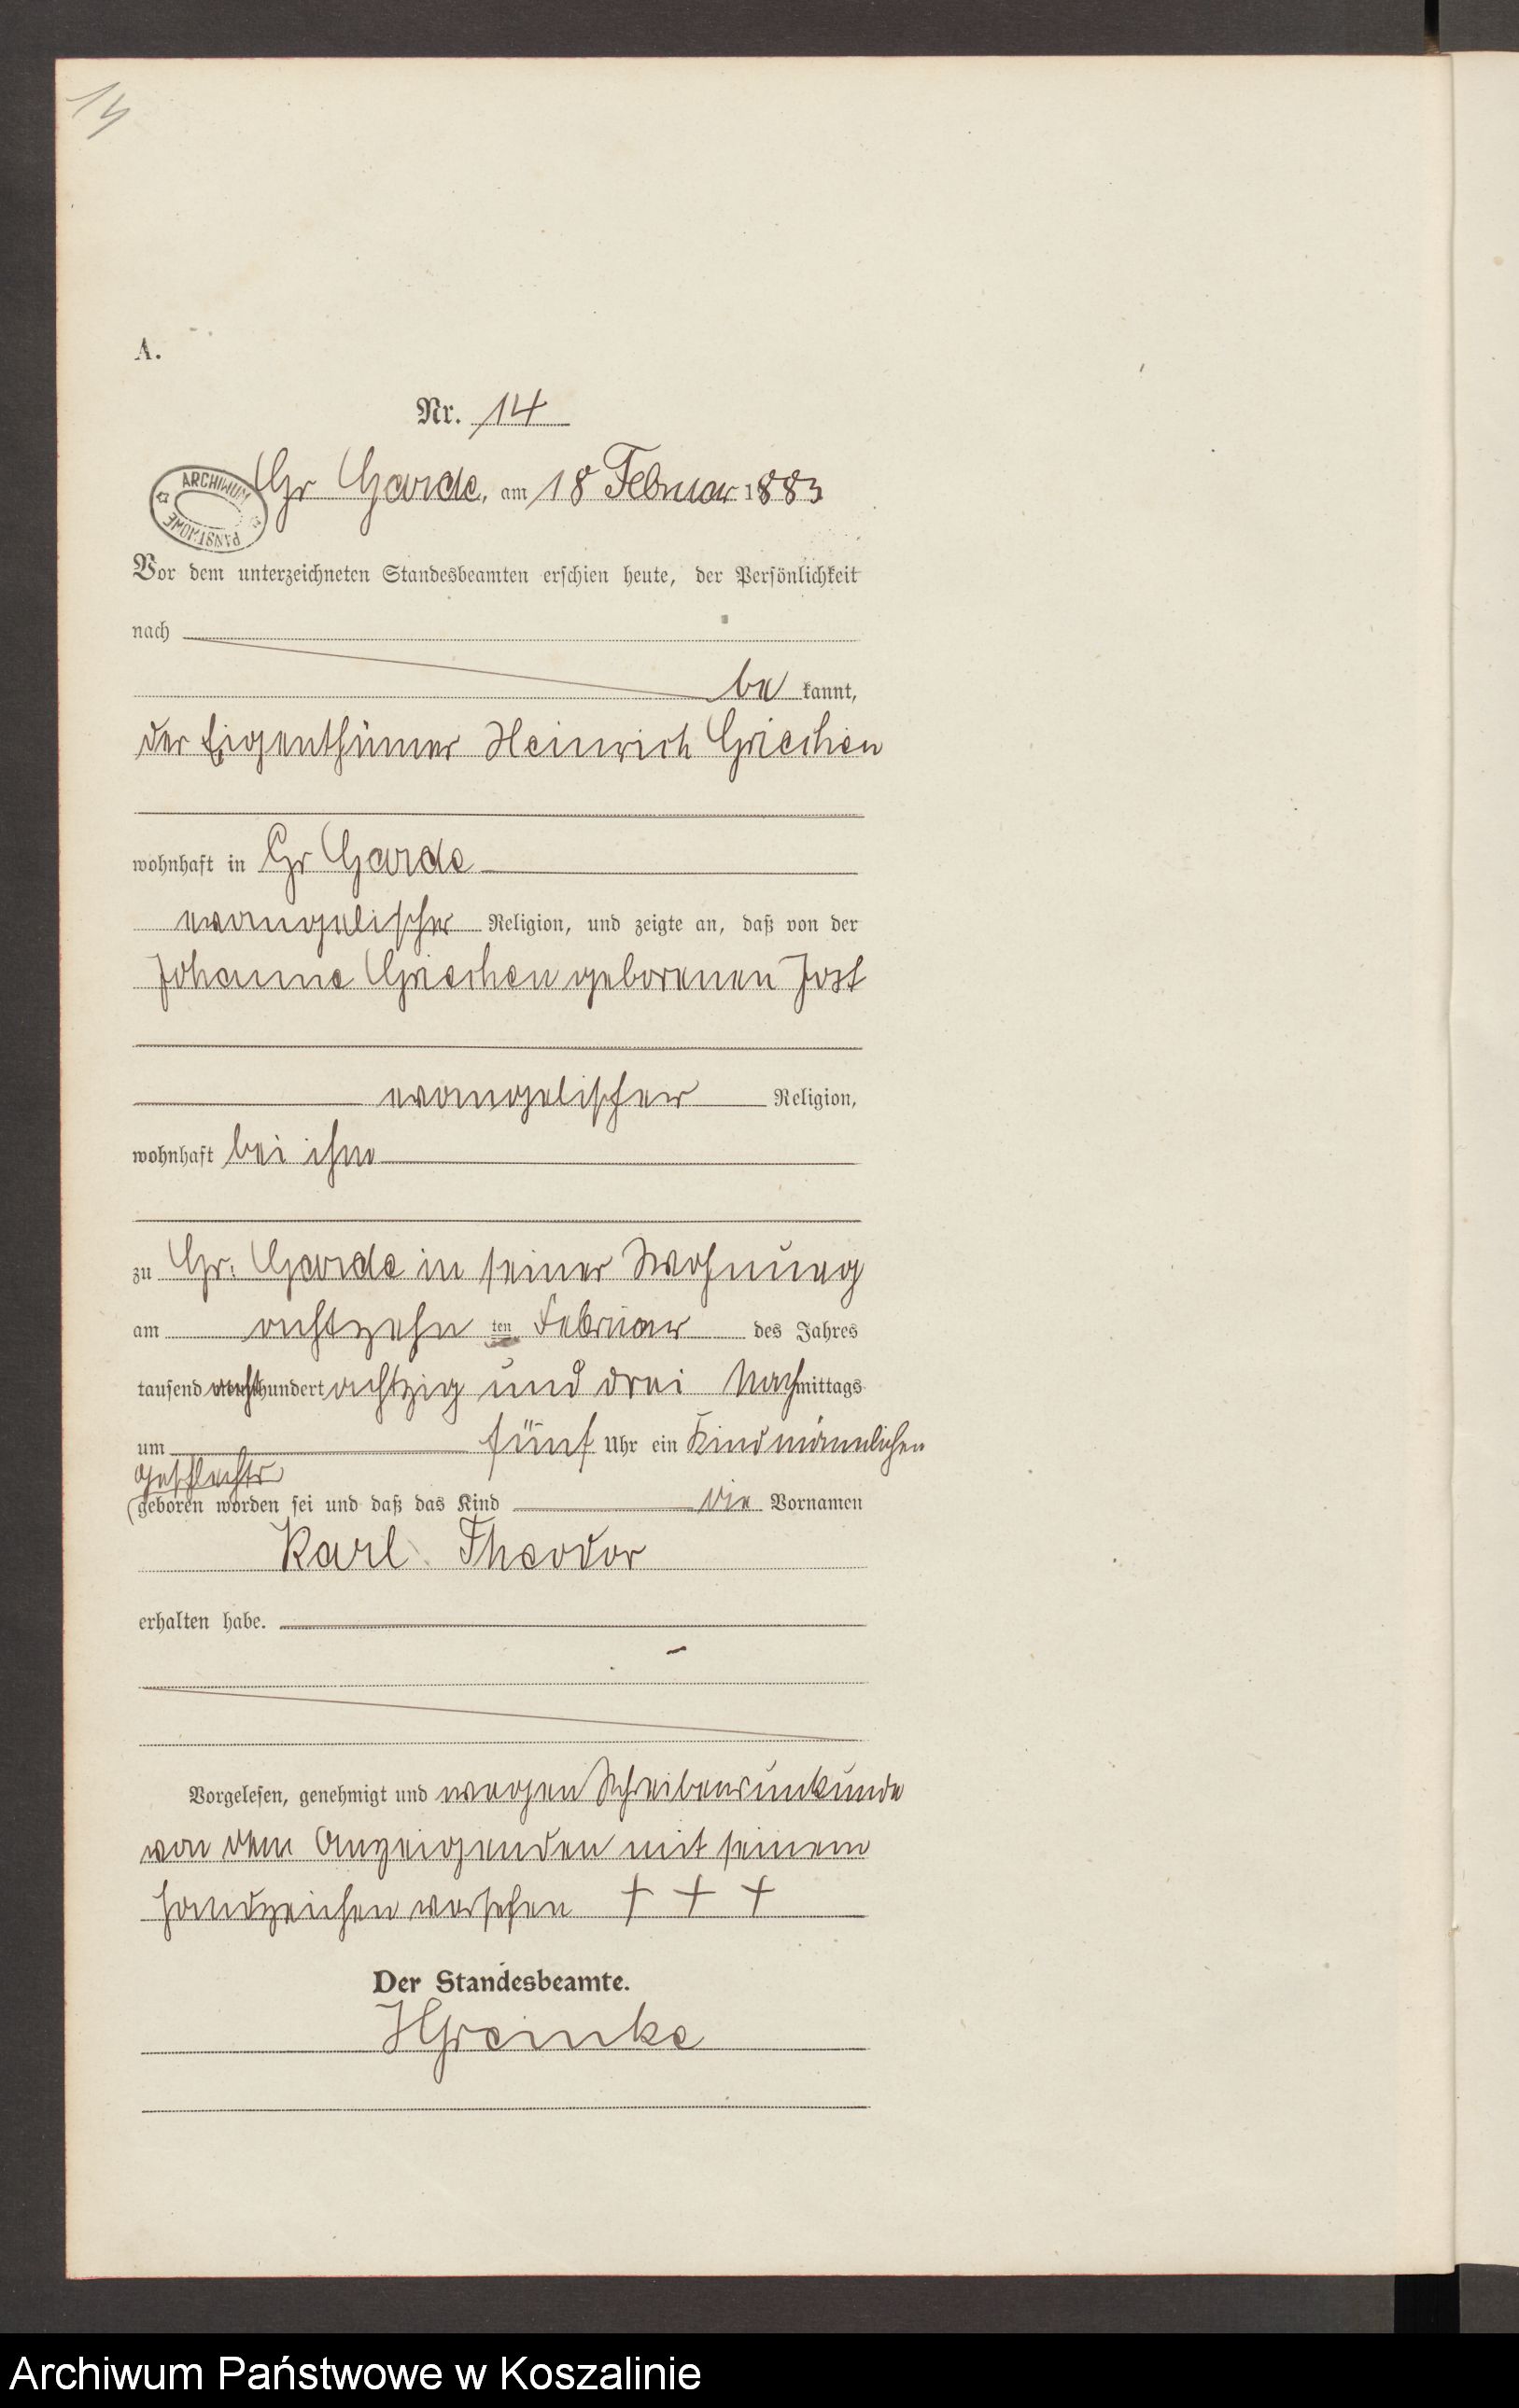 14
A.
Nr. 14
ARCHIWUM PAŃSTWOWE
Gr Garde, am 18 Februar 1883
Vor dem unterzeichneten Standesbeamten erschien heute, der Persönlichkeit
nach
be kannt,
der Eigenthümer Heinrich Grieschen
wohnhaft in Gr Garde
evangelischer Religion, und zeigte an, daß von der
Johanne Grieschen geborenen Jost
evangelischer Religion,
wohnhaft bei ihm
zu Gr. Garde in seiner Wohnung
am achtzehn ten Februar des Jahres
tausend acht hundert achtzig und drei Nachmittags
um fünf Uhr ein Kind männlichen
Geschlechts
geboren worden sei und daß das Kind die Vornamen
Karl Theodor
erhalten habe.
Vorgelesen, genehmigt und wegen Schreibensunkunde
von dem Anzeigenden mit seinem
Handzeichen versehen + + +
Der Standesbeamte.
HGreinke
Archiwum Państwowe w Koszalinie